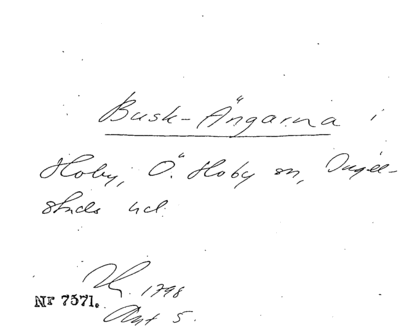 Busk-Ängarna i
Hoby, Ö. Hoby sn, Ingel-
stads hd.
1798
Nr 7371.
Akt 5.